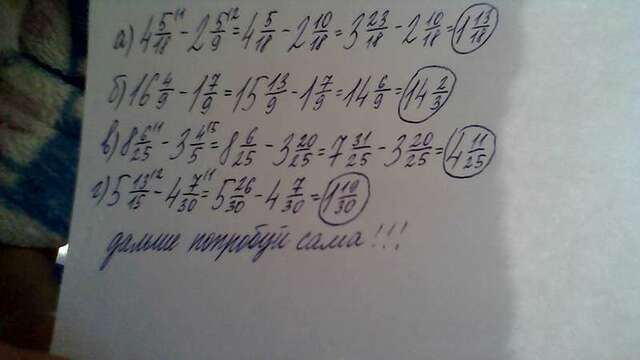 а) 4 5/18 ¹¹ - 2 5/9 ¹² = 4 5/18 - 2 10/18 = 3 23/18 - 2 10/18 = 1 13/18
б) 16 4/9 - 1 7/9 = 15 13/9 - 1 7/9 = 14 6/9 = 14 2/3
в) 8 6/25 ¹¹ - 3 4/5 ¹⁵ = 8 6/25 - 3 20/25 = 7 31/25 - 3 20/25 = 4 11/25
г) 5 13/15 ¹² - 4 7/30 ¹¹ = 5 26/30 - 4 7/30 = 1 19/30
дальше попробуй сама!!!